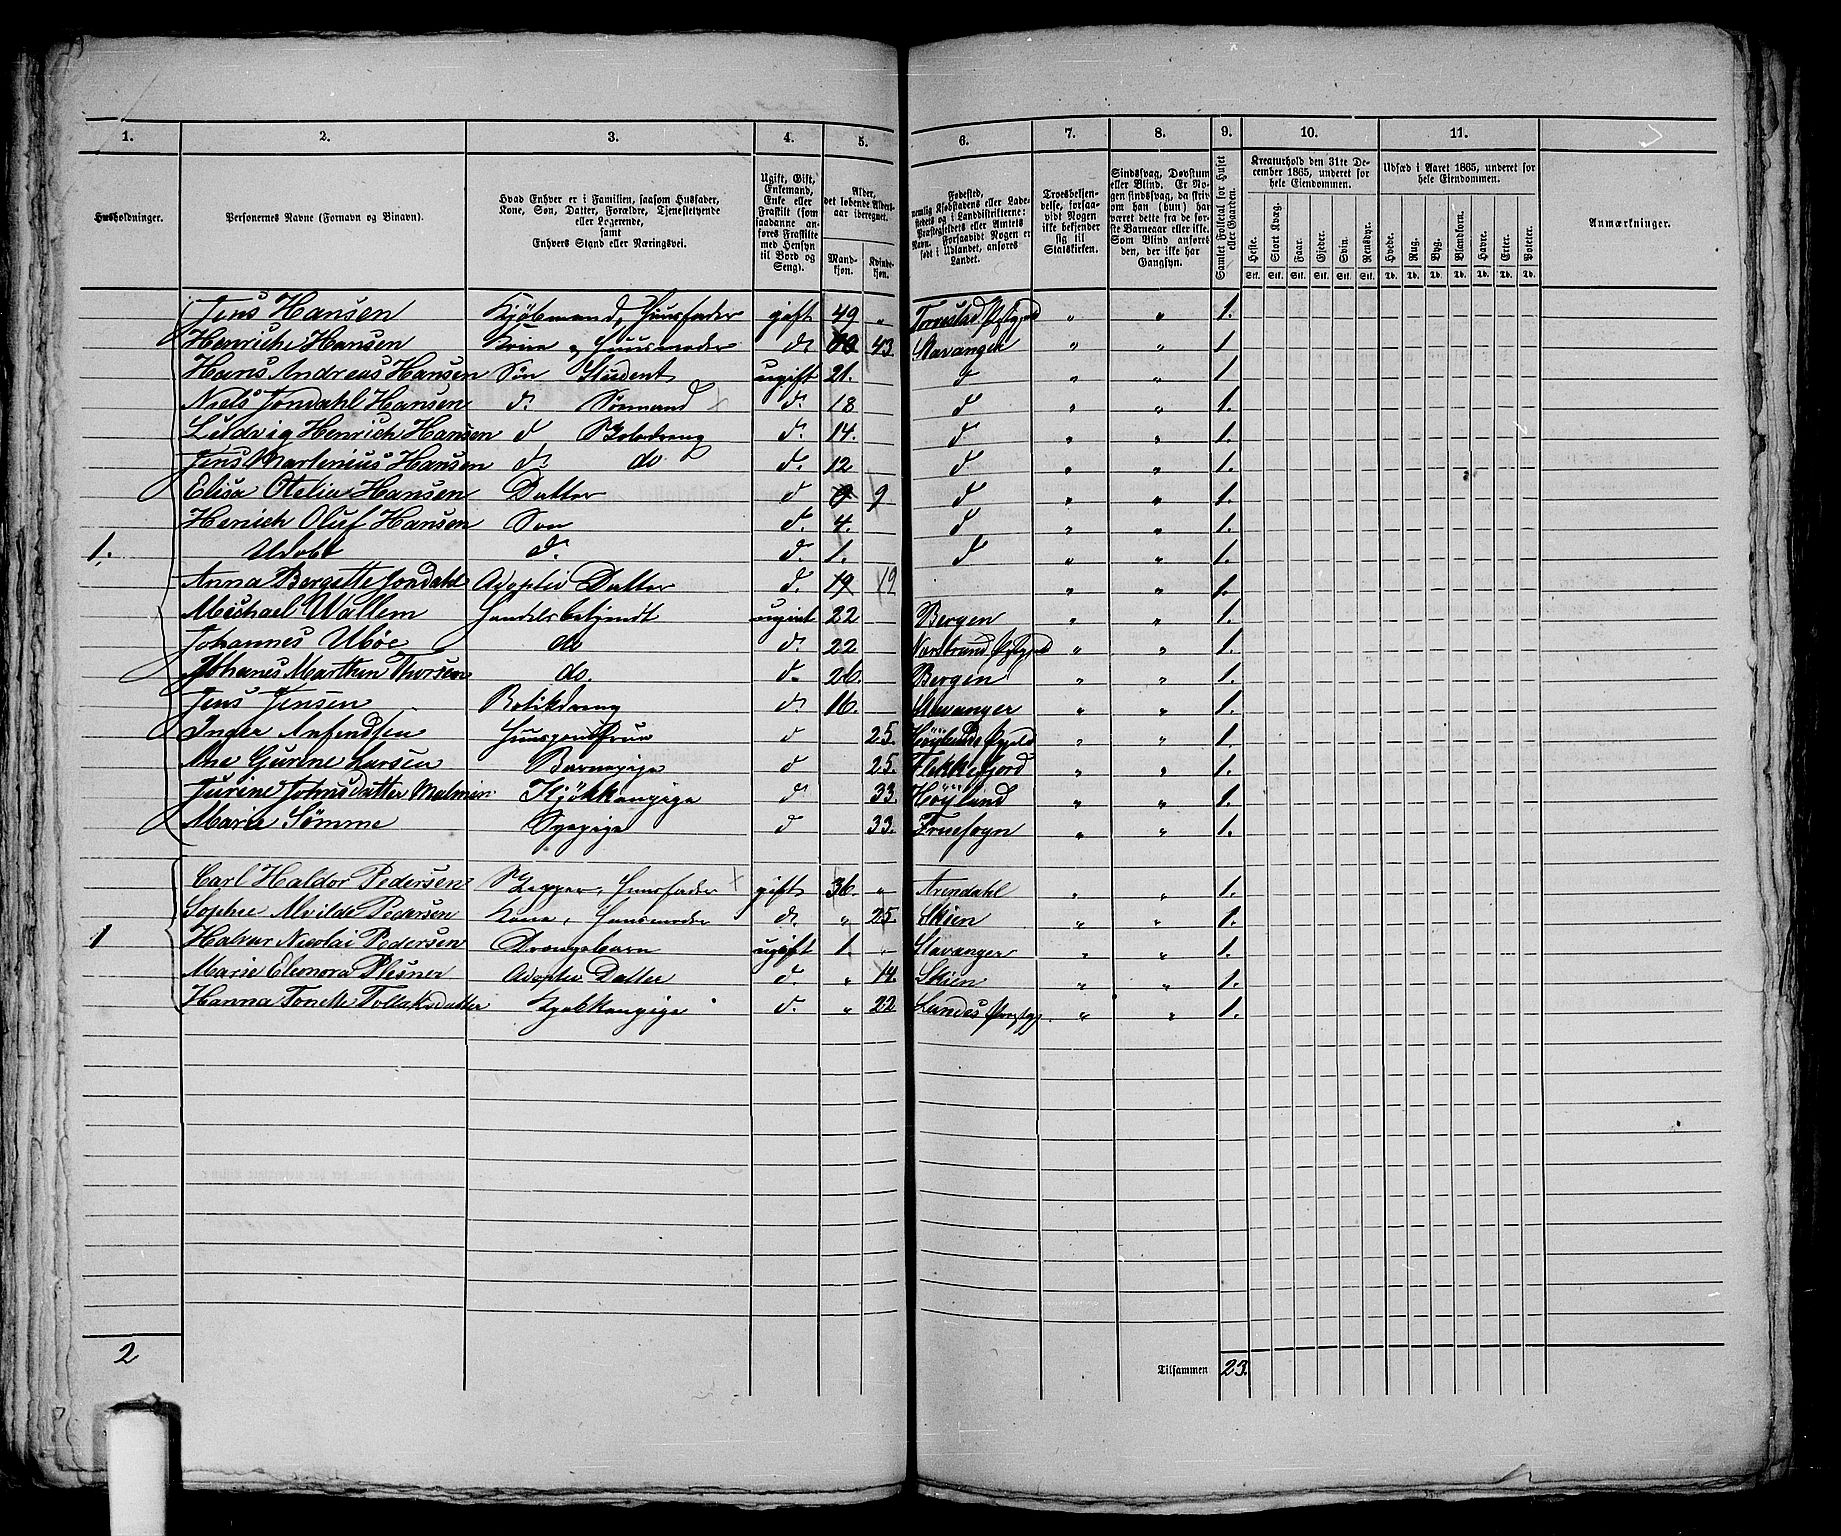 1. 2. 3. 4. 5. 6. 7. 8. 9. 10. 11.
Husholdninger.
Personernes Navne (Fornavn og Binavn).
Hvad Enhver er i Familien, saasom Husfader, Kone, Søn, Datter, Forældre, Tjenestetyende eller Logerende, samt Enhvers Stand eller Næringsvei.
Ugift, Gift, Enkemand, Enke eller Fraskilt (som saadanne anføres Fraskilte med Hensyn til Bord og Seng).
Alder, det løbende Aldersaar iberegnet.
Mandkjøn. Kvindekjøn.
Fødested, nemlig Kjøbstadens eller Ladestedets og i Landdistrikterne: Præstegjeldets eller Amtets Navn. Forsaavidt Nogen er født i Udlandet, anføres Landet.
Troesbekjendelse, forsaavidt Nogen ikke bekjender sig til Statskirken.
Sindssvag, Døvstum eller Blind. Er Nogen sindssvag, da skrives om han (hun) har været dette fra de første Barneaar eller ikke. Som Blind anføres den, der ikke har Gangsyn.
Samlet Folketal for Huset eller Gaarden.
Kreaturhold den 31te December 1865, underet for hele Eiendommen.
Heste. Stort Kvæg. Faar. Gjeder. Svin. Rensdyr.
Stk. Stk. Stk. Stk. Stk. Stk.
Udsæd i Aaret 1865, underet for hele Eiendommen.
Hvede. Rug. Byg. Blandkorn. Havre. Erter. Poteter.
Td. Td. Td. Td. Td. Td. Td.
Anmærkninger.
Jens Hansen Kjøbmand, Huusfader gift 49 „ Torvestad Præstegjeld „ „ 1.
Henriche Hansen Kone og Huusmoder d. 43 Stavanger „ „ 1
Hans Andreas Hansen Søn Student ugift 21. d „ „ 1
Niels Jondahl Hansen d. Sømand d. 18 d „ „ 1.
Ludvig Henrich Hansen d Skoledreng d. 14. d „ „ 1.
Jens Martinius Hansen d. do d. 12 d. „ „ 1.
Elisa Otelia Hansen Datter d 9 d „ „ 1.
Henich Oluf Hansen Søn d. 4. d „ „ 1.
1. Udøbt d. d. 1. d „ „ 1.
Anna Bergette Jondahl Adoptiv Datter d. 19 „ „ 1.
Michael Wallem Handelsbetjendt ugivt 22 Bergen „ „ 1.
Johannes Ubøe do d. 22 Narstrand Præstegjeld „ „ 1.
Johanes Marthin Thorsen do. d. 26. Bergen „ „ 1.
Jens Jensen Botikdreng d. 16. Stavanger „ „ 1.
Inger Anfindsen d 25. Høylands „ „ 1.
Ane Gurine Larsen Barnepige d 25. Flekkefjord „ „ 1.
Jurine Johnsdatter Malmin Kjøkkenpige d. 33. Høyland „ „ 1.
Marie Sømme Sypige d 33. Fruesogn „ „ 1.
Carl Haldor Pedersen Skipper, Huusfader gift 36 „ Arendahl „ „ 1.
Sophie Alvilde Pedersen Kone, Huusmoder d. „ 25. Skien „ „ 1.
1 Nicolai Pedersen Drengebarn ugift 1. „ Stavanger „ „ 1.
Marie Eleonora Plesner Adoptiv Datter d. „ 14. Skien „ „ 1.
Hanna Tonette Tollaksdatter Kjøkkenpige d. „ 22 Lundes „ „ 1.
2 Tilsammen 23.